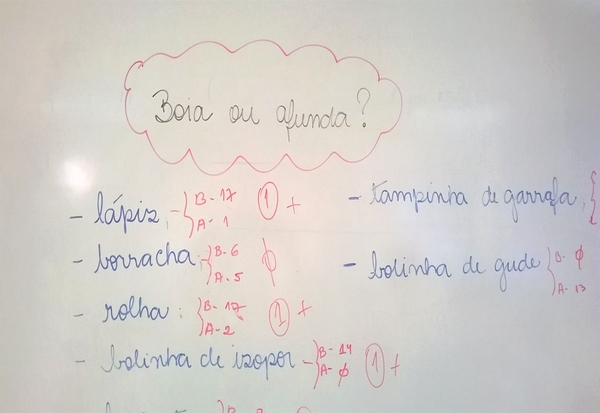 Boia ou afunda?
- lápiz, - { B - 17 A - 1 ① +
- borracha, - { B - 6 A - 5 ϕ
- rolha : { B - 17 A - 2 ① +
- bolinha de izopor - { B - 14 A - ϕ ① +
- tampinha de garrafa, {
- bolinha de gude { B - ϕ A - 13